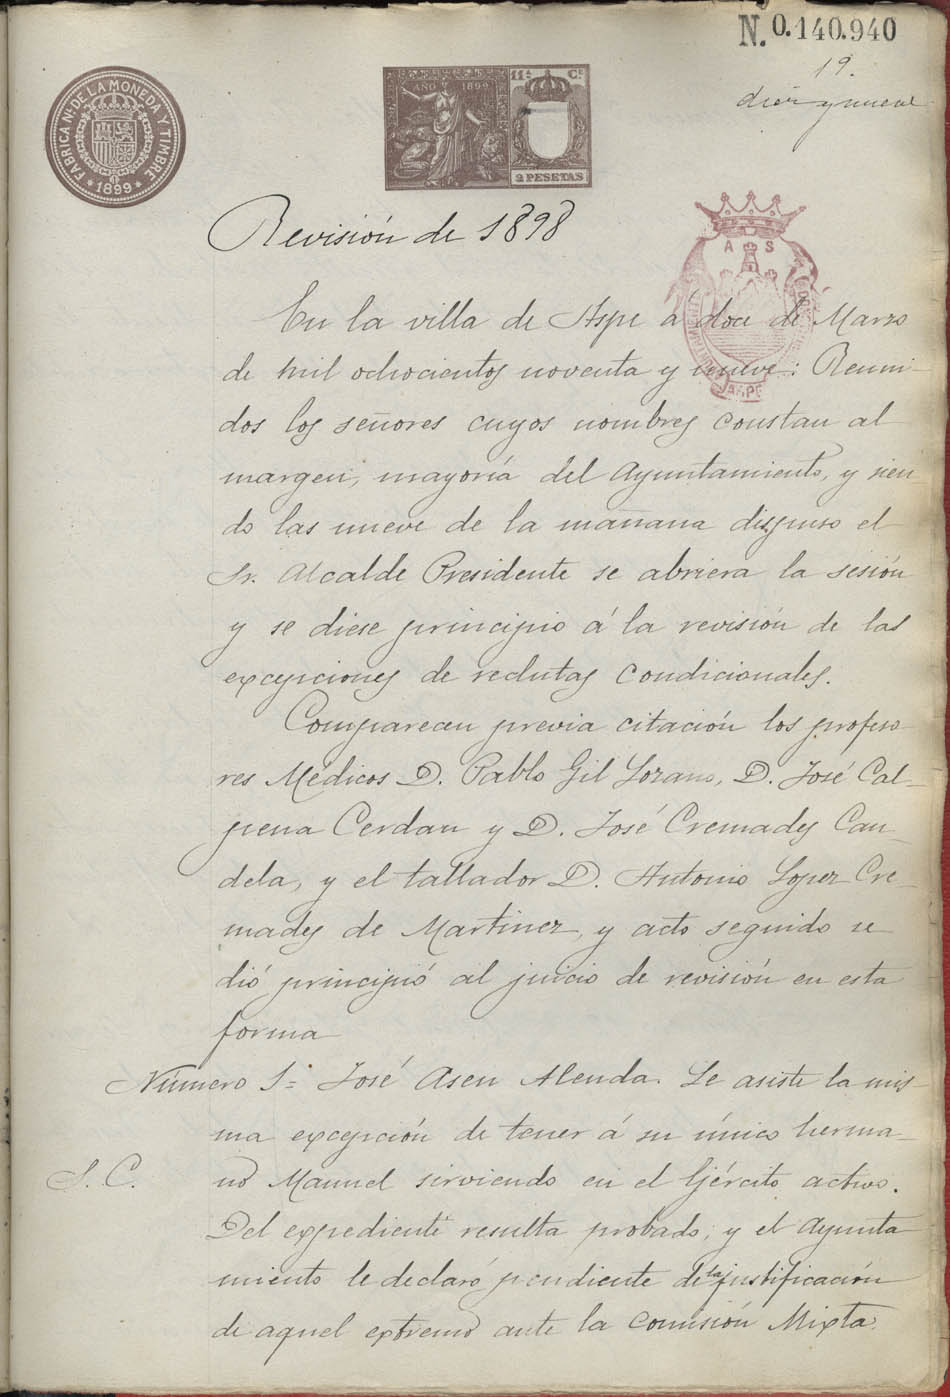 N. 0.140.940
19.
diez y nueve
FABRICA Nª DE LA MONEDA Y TIMBRE
1899
AÑO 1899
11ª Cª
2 PESETAS
A S
ASPE
Revisión de 1898
En la villa de Aspe á doce de Marzo
de mil ochocientos noventa y nueve: Reuni-
dos los señores cuyos nombres constan al
margen, mayoría del Ayuntamiento, y sien
do las nueve de la mañana dispuso el
Sr. Alcalde Presidente se abriera la sesión
y se diese principio á la revisión de las
excepciones de reclutas condicionales.
Comparecen previa citación los profeso-
res Médicos D. Pablo Gil Lozano, D. José Cal-
pena Cerdan y D. José Cremades Can-
dela, y el tallador D. Antonio Lopez Cre-
mades de Martinez, y acto seguido se
dió principió al juicio de revisión en esta
forma
Número 1= José Asen Alenda. Le asiste la mis-
ma excepción de tener á su único herma-
S. C.
no Manuel sirviendo en el Ejército activo.
Del expediente resulta probado, y el Ayunta
miento le declaró pendiente de la justificación
de aquel extremo ante la Comisión Mixta.